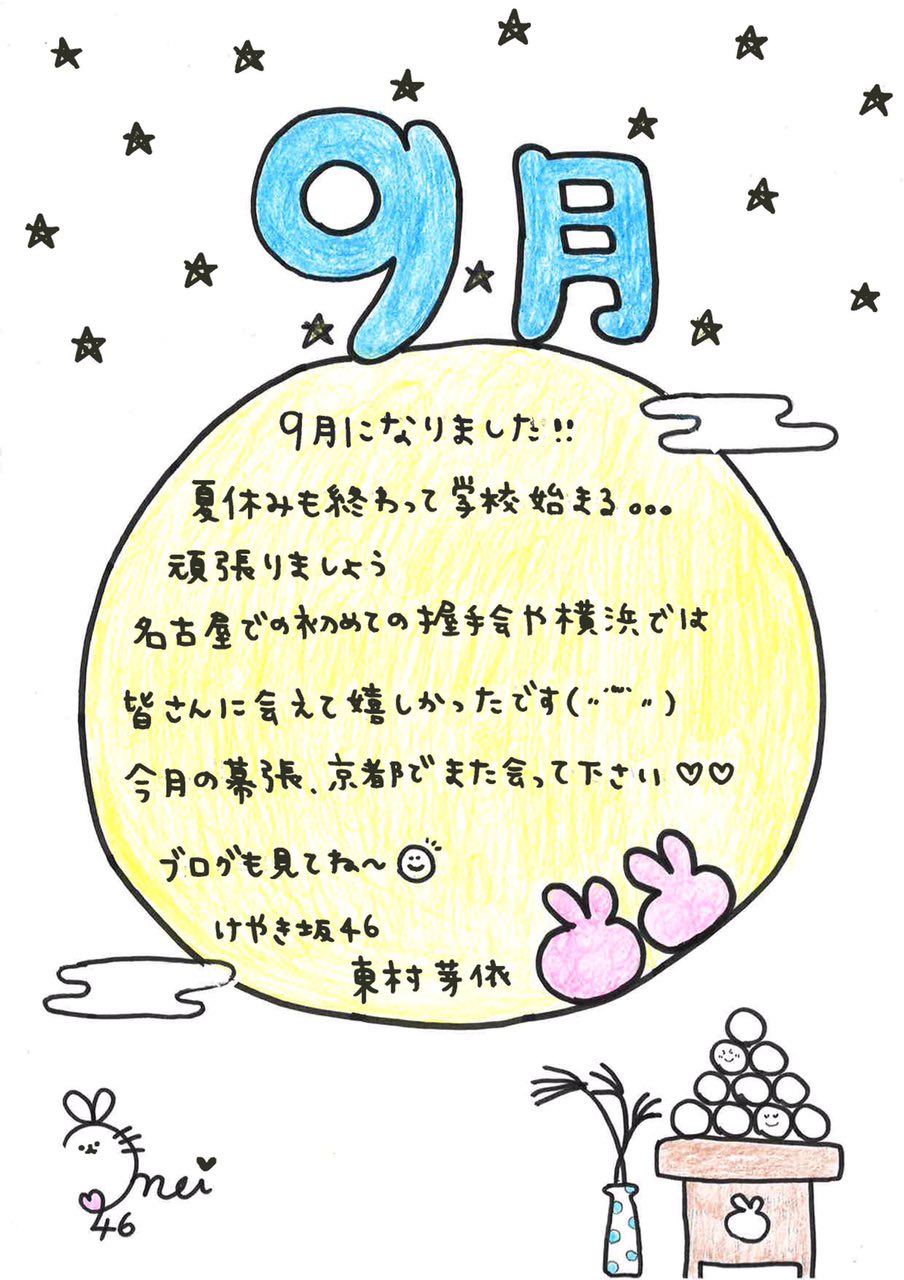 9月
9月になりました!!
夏休みも終わって学校始まる...
頑張りましょう
名古屋での初めての握手会や横浜では
皆さんに会えて嬉しかったです(〃ᵕ〃)
今月の幕張、京都でまた会って下さい♡♡
ブログも見てね〜
けやき坂46
東村芽依
mei
46